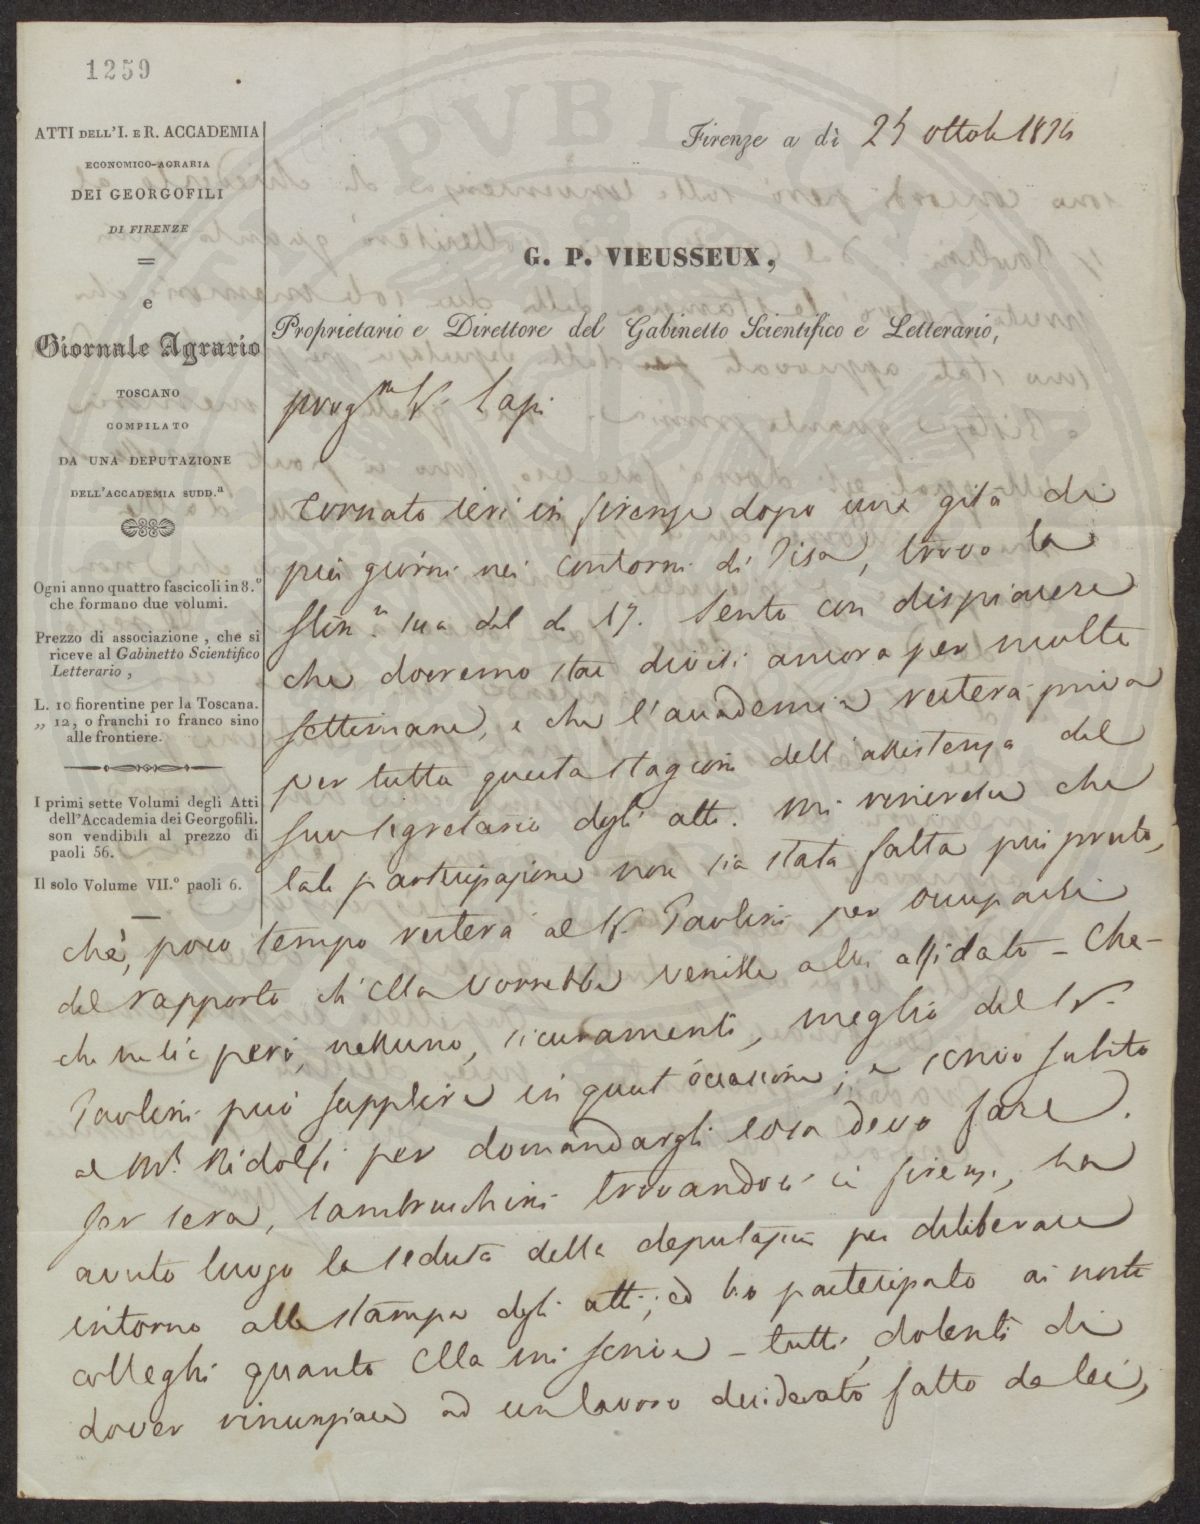 1259
ATTI DELL'I. E R. ACCADEMIA
ECONOMICO-AGRARIA
DEI GEORGOFILI
DI FIRENZE
e
Giornale Agrario
TOSCANO
COMPILATO
DA UNA DEPUTAZIONE
DELL'ACCADEMIA SUDD.a
Ogni anno quattro fascicoli in 8.°
che formano due volumi.
Prezzo di associazione, che si
riceve al Gabinetto Scientifico
Letterario,
L. 10 fiorentine per la Toscana.
„ 12, o franchi 10 franco sino
alle frontiere.
I primi sette Volumi degli Atti
dell'Accademia dei Georgofili.
son vendibili al prezzo di
paoli 56.
Il solo Volume VII.° paoli 6.
Firenze a dì 25 ottob 1834
G. P. VIEUSSEUX,
Proprietario e Direttore del Gabinetto Scientifico e Letterario,
preg.mo Sr. Lapi
Tornato ieri in firenze dopo una gita di
più giorni nei contorni di Pisa, trovo la
stim.a sua del dì 17. Sento con dispiacere
che dovremo stare divisi ancora per molte
settimane, e che l'accademia resterà priva
per tutta questa stagione dell'assistenza del
suo segretario degli atti. Mi rincresce che
tale partecipazione non sia stata fatta più presto,
chè, poco tempo resterà al Sr. Paolini per occuparsi
del rapporto ch'Ella vorrebbe venisse a lui affidato – Che-
che ne sia però, nessuno, sicuramente, meglio del Sr.
Paolini può supplire in quest'occasione; e scrivo subito
al Mse. Ridolfi per domandargli cosa devo fare.
Jer sera, Lambruschini trovandosi in firenze, ha
avuto luogo la seduta della deputazione per deliberare
intorno alla stampa degli atti; ed ho partecipato ai nostri
colleghi quanto Ella mi scrive – tutti, dolenti di
dover rinunziare ad un lavoro desiderato fatto da lei,